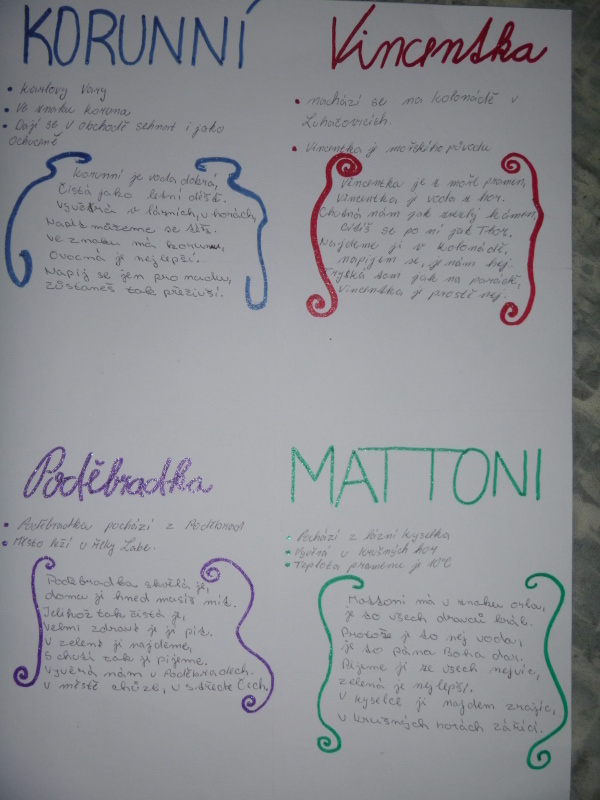 KORUNNÍ
• Karlovy Vary
• Ve znaku koruna
• Dají se v obchodě sehnat i jako
ochucené
Korunní je voda dobrá,
čistá jako letní déšť.
Vyvěrá v lázních, v horách,
Napít můžeme se též.
Ve znaku má korunu,
Ovocná je nejlepší.
Napij se jen pro nudu,
zůstaneš tak přeživší.
Vincentka
• nachází se na kolonádě v
Luhačovicích.
• Vincentka je mořského původu
Vincentka je z moří pramen,
Vincentka je voda z hor.
Chutná nám jak kámen,
cítíš se po ní jak Thor.
Najdeme ji v kolonádě,
napijem se, je nám hej.
Tryská sem jak na parádě,
Vincentka je prostě nej.
Poděbradka
• Poděbradka pochází z Poděbrad
• Město leží u řeky Labe.
Poděbradka skvělá je,
doma ji hned musíš mít.
Jelikož tak čistá je,
Velmi zdravé je ji pít.
V zeleni ji najdeme,
S chutí tak ji pijeme.
Vyvěrá nám v Poděbradech.
V městě u středu Čech,
MATTONI
• Pochází z lázní Kyselka
• Vyvěrá v Krušných hor
• Teplota pramenu je 10°C
Mattoni má v znaku orla,
je to všech dravců král.
Protože je to nej voda,
je to pána Boha dar.
Pijeme ji ze všech nejvíc,
zelená je nejlepší.
V kyselce ji najdem
v Krušných horách zářící.